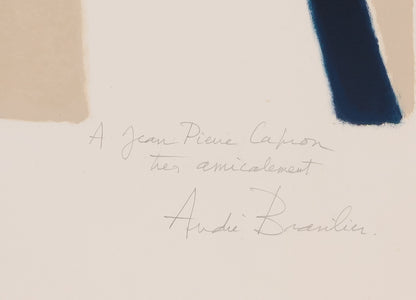 A Jean Pierre Capron
très amicalement
André Brasilier.